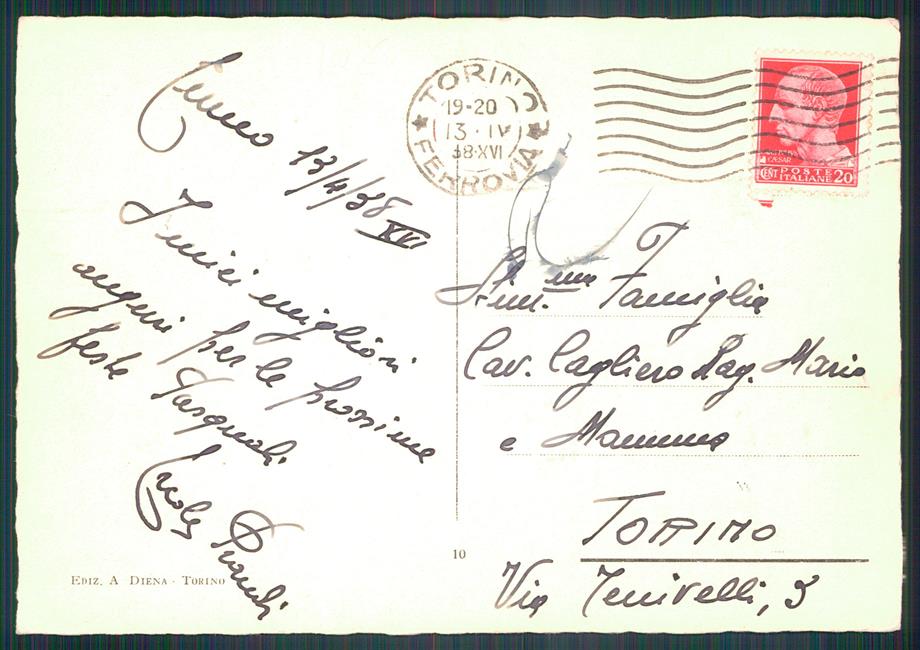 13/4/38
XVI
I miei migliori
auguri per le prossime
feste Pasquali
EDIZ. A DIENA - TORINO
10
TORINO
19-20
13·IV
38·XVI
FERROVIA
CAESAR
CENT POSTE ITALIANE 20
Famiglia
Cav. Cagliero Rag. Mario
e Mamma
TORINO
Via Tenivelli, 3